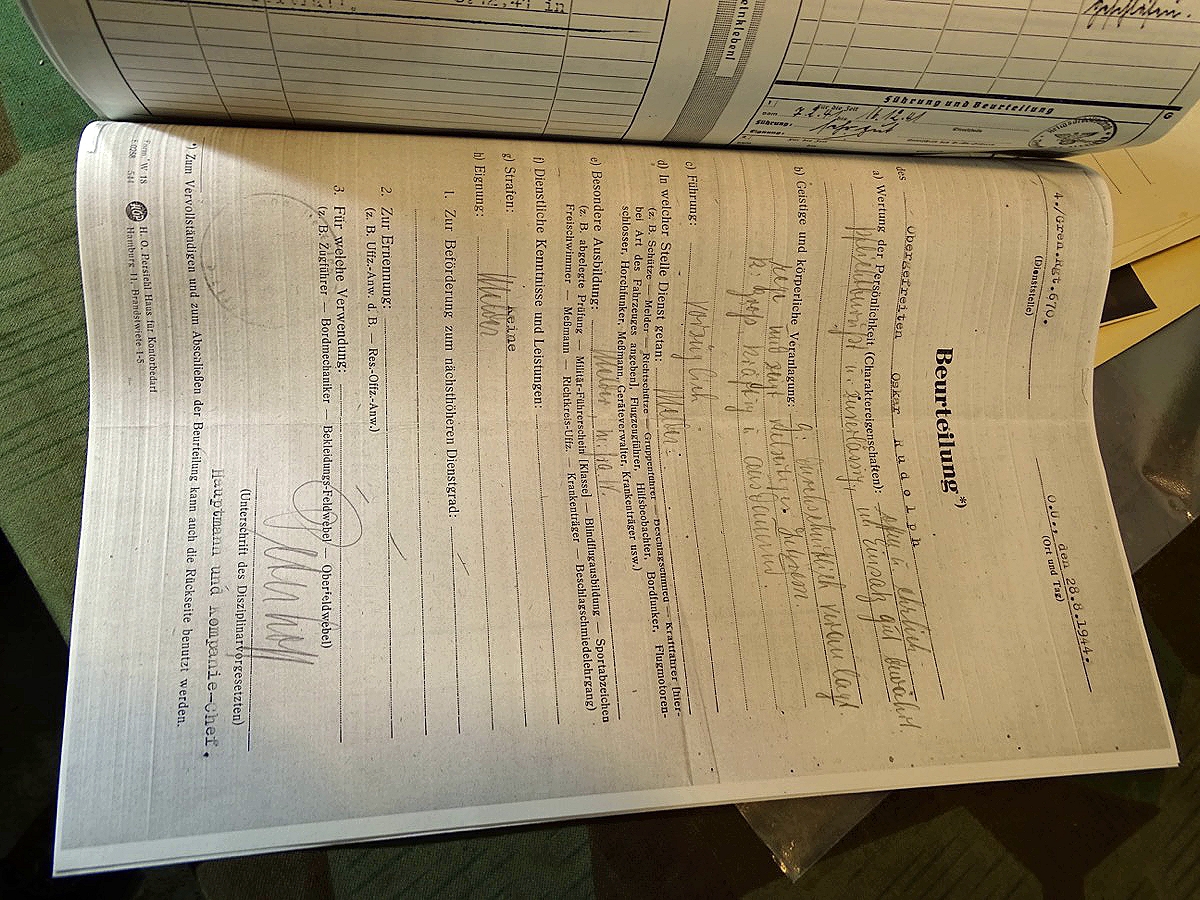 Führung und Beurteilung
für die Zeit
vom 7.2.41 bis 16.12.41
Führung: sehr gut
Eignung:
G
4./Gren.Rgt.670.
(Dienststelle)
O.U., den 28.8.1944.
(Ort und Tag)
Beurteilung*)
des Obergefreiten Oskar Rudolph
a) Wertung der Persönlichkeit (Charaktereigenschaften): ehrlich,
pflichtbewußt u. zuverlässig, im Einsatz gut bewährt
b) Geistige und körperliche Veranlagung: G: durchschnittlich veranlagt
K: groß, kräftig u. ausdauernd.
c) Führung: vorzüglich.
d) In welcher Stelle Dienst getan: Melder.
(z. B. Schütze — Melder — Richtschütze — Gruppenführer — Beschlagschmied — Kraftfahrer [hier-
bei Art des Fahrzeuges angeben], Flugzeugführer, Hilfsbeobachter, Bordfunker, Flugmotoren-
schlosser, Horchfunker, Meßmann, Geräteverwalter, Krankenträger usw.)
e) Besondere Ausbildung: Melder
(z. B. abgelegte Prüfung — Militär-Führerschein [Klasse] — Blindflugausbildung — Sportabzeichen
Freischwimmer — Meßmann — Richtkreis-Uffz. — Krankenträger — Beschlagschmiedelehrgang)
f) Dienstliche Kenntnisse und Leistungen:
g) Strafen: Keine
h) Eignung: Melder
1. Zur Beförderung zum nächsthöheren Dienstgrad: —
2. Zur Ernennung: —
(z. B. Uffz.-Anw. d. B. — Res.-Offz.-Anw.)
3. Für welche Verwendung:
(z. B. Zugführer — Bordmechaniker — Bekleidungs-Feldwebel — Oberfeldwebel)
(Unterschrift des Disziplinarvorgesetzten)
Hauptmann und Kompanie-Chef.
*) Zum Vervollständigen und zum Abschließen der Beurteilung kann auch die Rückseite benutzt werden.
Form. W 18
H. O. Persiehl Haus für Kontorbedarf
Hamburg 11, Brandstwiete 1-5